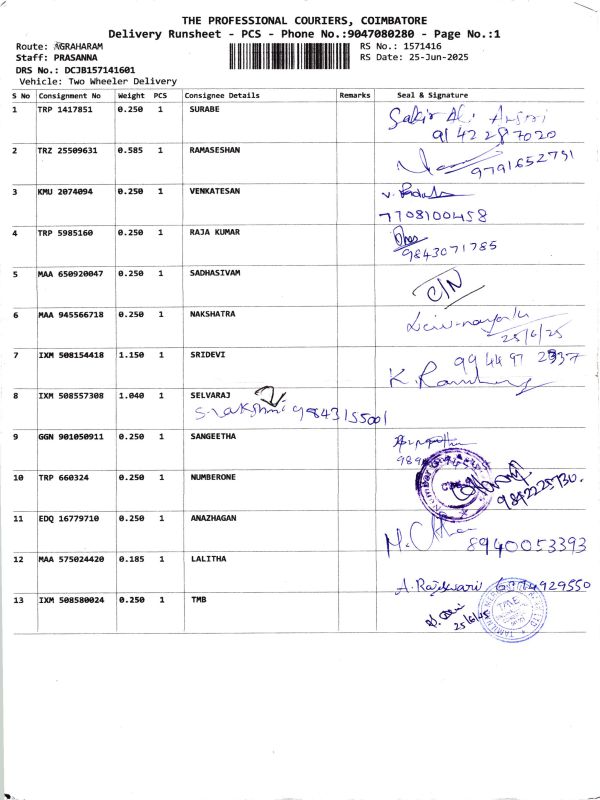 THE PROFESSIONAL COURIERS, COIMBATORE
Delivery Runsheet - PCS - Phone No.:9047080280 - Page No.:1
Route: AGRAHARAM RS No.: 1571416
Staff: PRASANNA RS Date: 25-Jun-2025
DRS No.: DCJB157141601
Vehicle: Two Wheeler Delivery
S No Consignment No Weight PCS Consignee Details Remarks Seal & Signature
1 TRP 1417851 0.250 1 SURABE
9142287020
2 TRZ 25509631 0.585 1 RAMASESHAN
9791652791
3 KMU 2074094 0.250 1 VENKATESAN
7708100458
4 TRP 5985160 0.250 1 RAJA KUMAR
9843071785
5 MAA 650920047 0.250 1 SADHASIVAM
C/N
6 MAA 945566718 0.250 1 NAKSHATRA
25/6/25
7 IXM 508154418 1.150 1 SRIDEVI
99 44 97 2337
8 IXM 508557308 1.040 1 SELVARAJ
S. Lakshmi 9843155001
9 GGN 901050911 0.250 1 SANGEETHA
10 TRP 660324 0.250 1 NUMBERONE
9842225730.
11 EDQ 16779710 0.250 1 ANAZHAGAN
8940053393
12 MAA 575024420 0.185 1 LALITHA
A. Rajeswari 6374929550
13 IXM 508580024 0.250 1 TMB
25/6/25